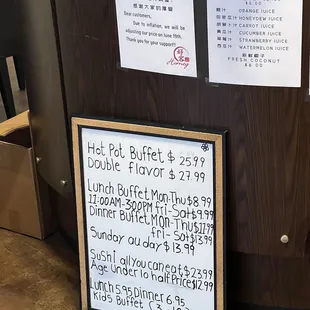 感謝大家的厚愛
Dear customers,
Due to inflation, we will be
adjusting our price on June 19th.
Thank you for your support!
Honey
ORANGE JUICE
HONEYDEW JUICE
CARROT JUICE
CUCUMBER JUICE
STRAWBERRY JUICE
WATERMELON JUICE
FRESH COCONUT
$6.00
Hot Pot Buffet $25.99
Double flavor $27.99
Lunch Buffet Mon-Thu $8.99
11:00AM-3:00PM fri-Sat $9.99
Dinner Buffet Mon-Thu $11.99
fri-Sat $13.99
Sunday au day $13.99
Sushi all you can eat $23.99
Age Under 10 half Price $12.99
Lunch 5.95 Dinner 6.95
Kids Buffet